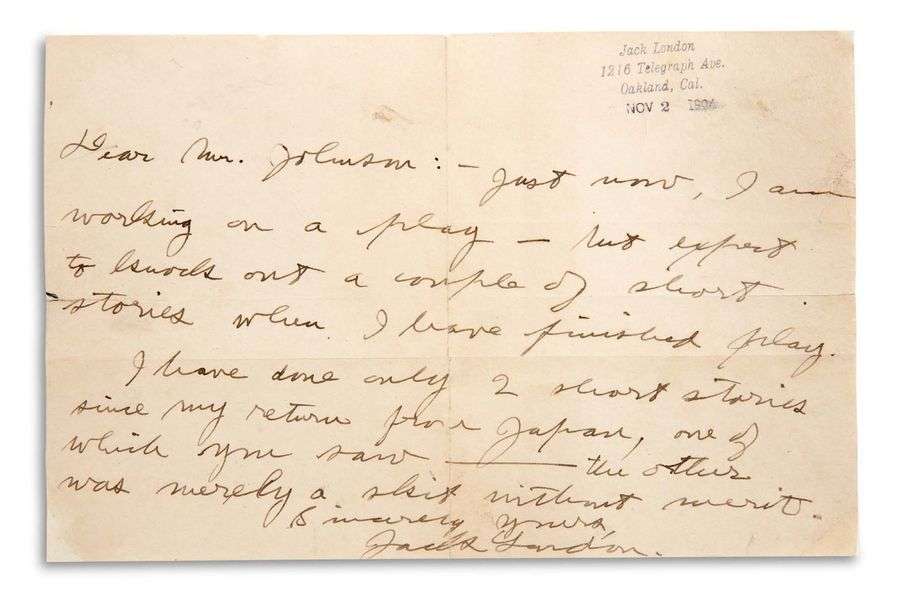 Jack London
1216 Telegraph Ave.
Oakland, Cal.
NOV 2 1904
Dear Mr. Johnson:– Just now, I am
working on a play – but expect
to knock out a couple of short
stories when I have finished play.
I have done only 2 short stories
since my return from Japan, one of
which you saw — the other
was merely a skit without merit.
Sincerely yours,
Jack London.